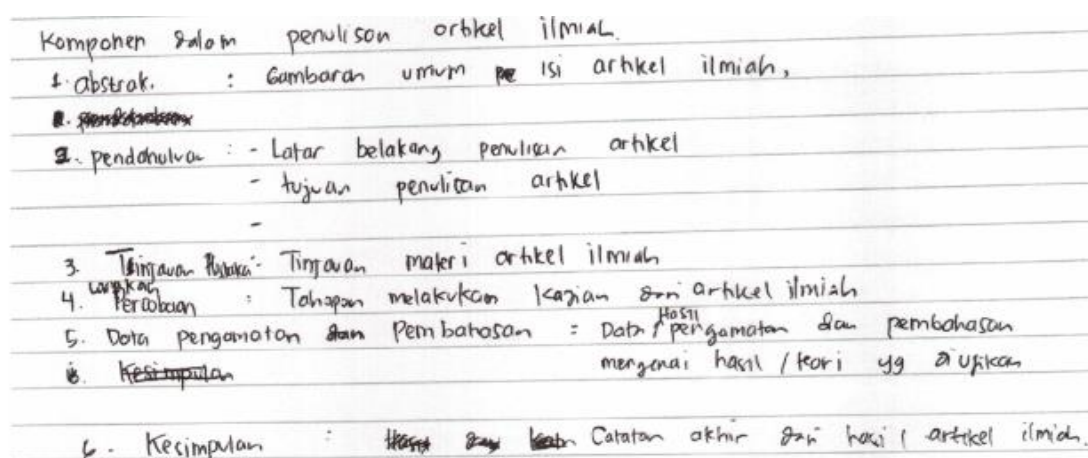 Komponen dalam penulisan artikel ilmiah.
1. abstrak. : Gambaran umum isi artikel ilmiah,
2. pendahuluan : - Latar belakang penulisan artikel
- tujuan penulisan artikel
-
3. Tinjauan Pustaka : Tinjauan materi artikel ilmiah
4. Langkah Percobaan : Tahapan melakukan kajian dari artikel ilmiah
5. Data pengamatan dan Pembahasan : Data / Hasil pengamatan dan pembahasan
mengenai hasil / teori yg diujikan
6. Kesimpulan
6. Kesimpulan : Catatan akhir dari hasil artikel ilmiah.